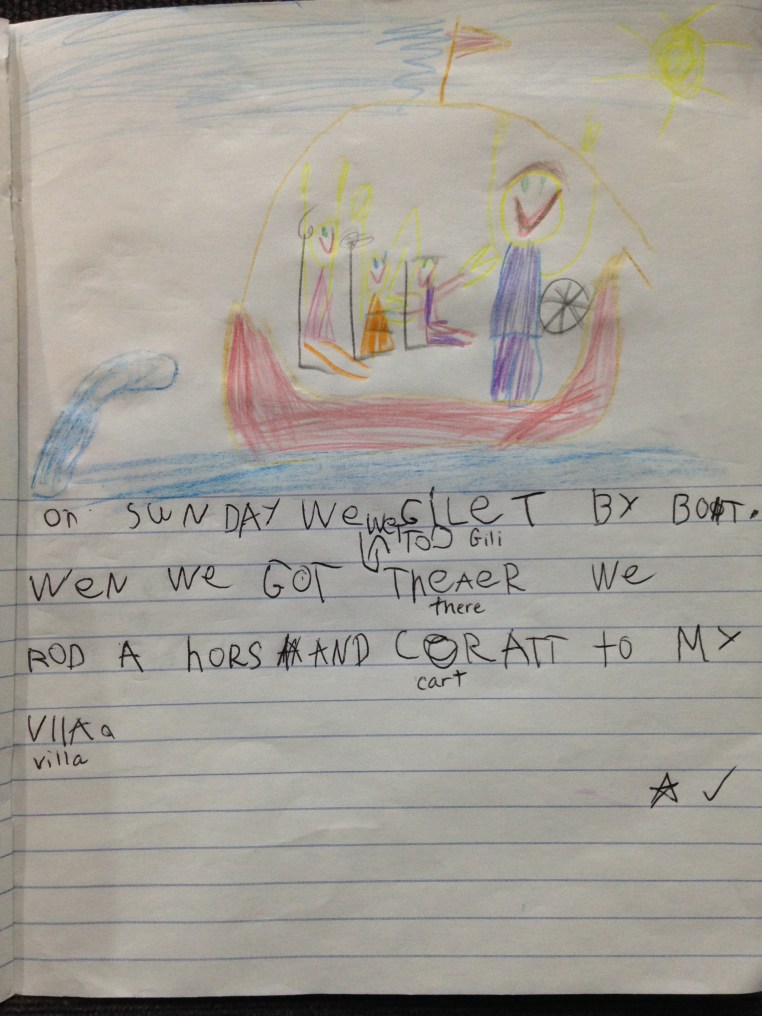 on SUNDAY We weT GiLeT BY BOAT.
TO Gili
WeN We GOT TheAeR We
there
ROD A hORS AND CORATT to MY
cart
VIllA a
villa